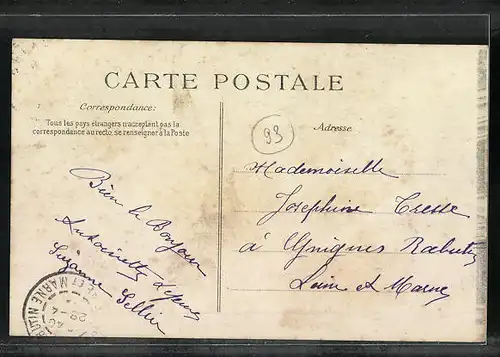 CARTE POSTALE
Correspondance:
Tous les pays étrangers n'acceptent pas la
correspondance au recto, se renseigner à la Poste
93
Adresse
Mademoiselle
Josephine Tresse
à
Seine et Marne
Bien le Bonjour
Antoinette
Suzanne Sellier
ET MARNE
28 - 4